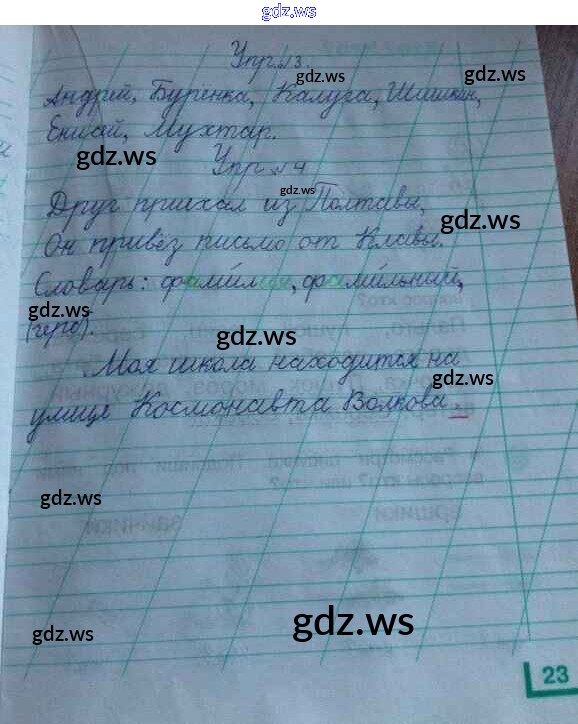 gdz.ws
Упр №3
gdz.ws
gdz.ws
Андрей, Буренка, Калуга, Шишкин,
Енисей, Мухтар.
gdz.ws
Упр №4
gdz.ws
Друг приехал из Полтавы,
gdz.ws
Он привёз письмо от Клавы.
Словарь: фамилия, фамильний,
gdz.ws
(герб).
gdz.ws
Моя школа находится на
gdz.ws
улице Космонавта Волкова.
вопрос кто?
gdz.ws
gdz.ws
gdz.ws
23